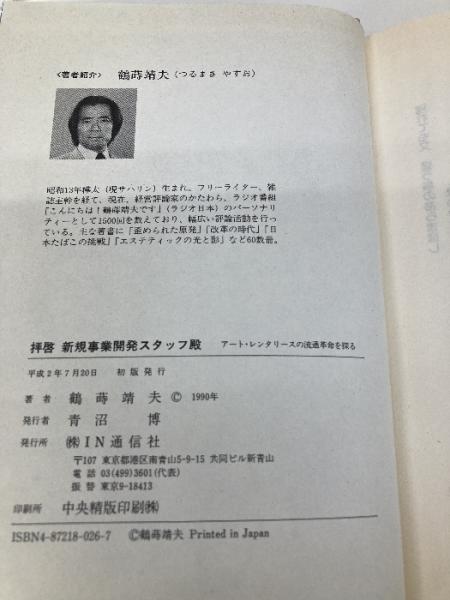 〈著者紹介〉 鶴蒔靖夫（つるまき やすお）
昭和13年樺太（現サハリン）生まれ。フリーライター、雑
誌主幹を経て、現在、経営評論家のかたわら、ラジオ番組
『こんにちは！鶴蒔靖夫です』（ラジオ日本）のパーソナリ
ティーとして1500回を数えており、幅広い評論活動を行っ
ている。主な著書に『歪められた原発』『改革の時代』『日
本たばこの挑戦』『エステティックの光と影』など60数冊。
拝啓 新規事業開発スタッフ殿 アート・レンタリースの流通革命を探る
平成2年7月20日 初版発行
著者 鶴蒔靖夫 © 1990年
発行者 青沼 博
発行所 ㈱IN通信社
〒107 東京都港区南青山5-9-15 共同ビル新青山
電話 03(499)3601(代表)
振替 東京9-18413
印刷所 中央精版印刷㈱
ISBN4-87218-026-7 ©鶴蒔靖夫 Printed in Japan